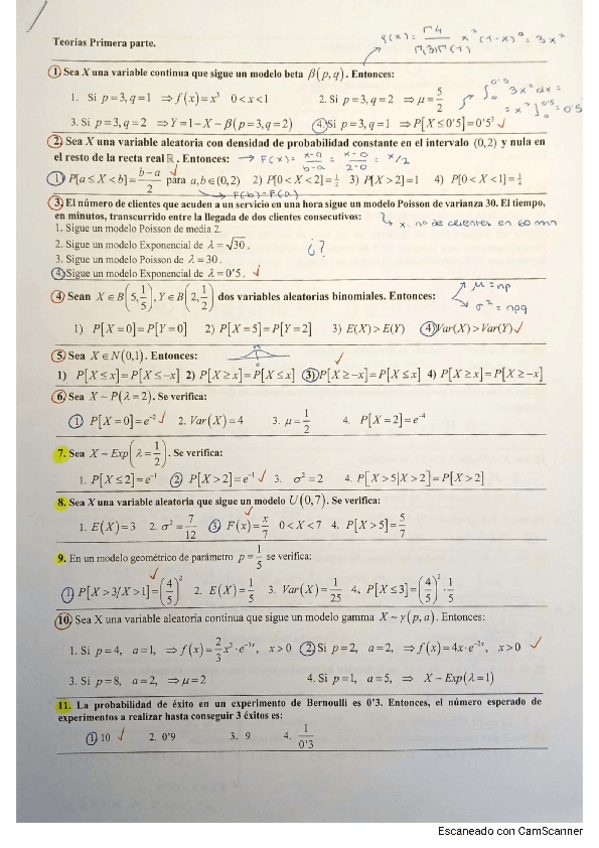 f(x) = Γ4 / Γ(3)Γ(1) x²(1-x)⁰ = 3x²
Teorías Primera parte.
1) Sea X una variable continua que sigue un modelo beta β(p,q). Entonces:
1. Si p=3, q=1 ⇒ f(x)=x³ 0<x<1 2. Si p=3, q=2 ⇒ μ=5/2
∫₀^0'5 3x² dx =
= x³]₀^0'5 = 0'5
3. Si p=3, q=2 ⇒ Y=1-X ~ β(p=3, q=2) 4. Si p=3, q=1 ⇒ P[X≤0'5]=0'5³ ✓
2) Sea X una variable aleatoria con densidad de probabilidad constante en el intervalo (0,2) y nula en
el resto de la recta real ℝ. Entonces: → F(x) = x-a/b-a = x-0/2-0 = x/2
1) P[a≤X<b]=b-a/2 para a,b∈(0,2) ✓ 2) P[0<X<2]=¼ 3) P(X>2]=1 4) P[0<X<1]=¼
→ F(b)-F(a)
3. El número de clientes que acuden a un servicio en una hora sigue un modelo Poisson de varianza 30. El tiempo,
en minutos, transcurrido entre la llegada de dos clientes consecutivos: ↳ x: nº de clientes en 60 min
1. Sigue un modelo Poisson de media 2.
2. Sigue un modelo Exponencial de λ=√30. ¿?
3. Sigue un modelo Poisson de λ=30.
4. Sigue un modelo Exponencial de λ=0'5. ✓
4) Sean X∈B(5,1/5), Y∈B(2,1/2) dos variables aleatorias binomiales. Entonces: μ=np
σ²=npq
1) P[X=0]=P[Y=0] 2) P[X=5]=P[Y=2] 3) E(X)>E(Y) 4) Var(X)>Var(Y) ✓
5. Sea X∈N(0,1). Entonces:
1) P[X≤x]=P[X≤-x] 2) P[X≥x]=P[X≤x] 3) P[X≥-x]=P[X≤x] ✓ 4) P[X≥x]=P[X≥-x]
6. Sea X~P(λ=2). Se verifica:
1. P[X=0]=e⁻² ✓ 2. Var(X)=4 3. μ=1/2 4. P[X=2]=e⁻⁴
7. Sea X~Exp(λ=1/2). Se verifica:
1. P[X≤2]=e⁻¹ 2) P[X>2]=e⁻¹ ✓ 3. σ²=2 4. P[X>5|X>2]=P[X>2]
8. Sea X una variable aleatoria que sigue un modelo U(0,7). Se verifica:
1. E(X)=3 2. σ²=7/12 3) F(x)=x/7 0<X<7 ✓ 4. P[X>5]=5/7
9. En un modelo geométrico de parámetro p=1/5 se verifica:
1) P[X>3/X>1]=(4/5)² ✓ 2. E(X)=1/5 3. Var(X)=1/25 4. P[X≤3]=(4/5)²·1/5
10) Sea X una variable aleatoria continua que sigue un modelo gamma X~γ(p,a). Entonces:
1. Si p=4, a=1, ⇒ f(x)=2/3 x³·e⁻¹ˣ, x>0 2) Si p=2, a=2, ⇒ f(x)=4x·e⁻²ˣ, x>0 ✓
3. Si p=8, a=2, ⇒ μ=2 4. Si p=1, a=5, ⇒ X~Exp(λ=1)
11. La probabilidad de éxito en un experimento de Bernoulli es 0'3. Entonces, el número esperado de
experimentos a realizar hasta conseguir 3 éxitos es:
1) 10 ✓ 2. 0'9 3. 9 4. 1/0'3
Escaneado con CamScanner